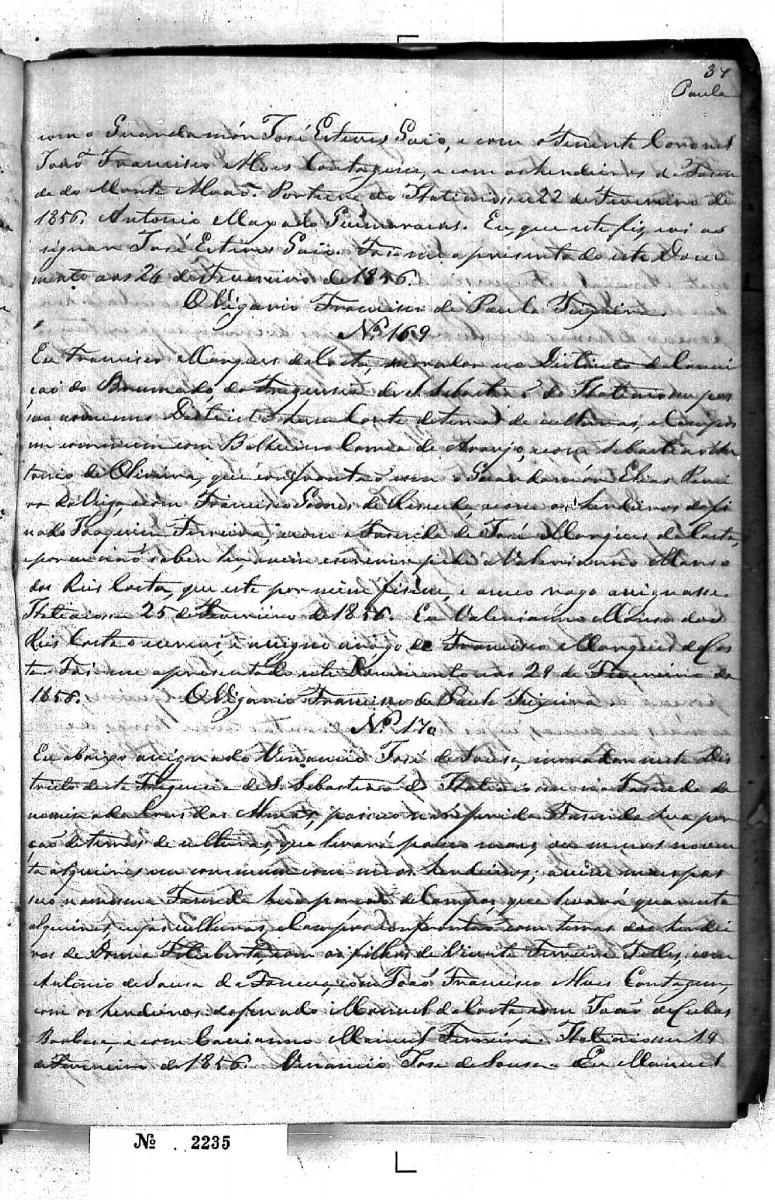 34
Paula
com o Guarda mór José Esteves Gaio, e com o Tenente Coronel
João Francisco Alves Contagem, e com os herdeiros da Fasen
da do Monte Alvão. Portreiro do Itatiaiossu 22 de Fevereiro de
1856. Antonio Maxado Guimaraens. Eu que este fiz, vai as
signar José Esteves Gaio. Foi me apresentado este Docu
mento aos 24 de Fevereiro de 1856.
O Vigario Francisco de Paula Teixeira.
Nº 169
Eu Francisco Marques da Costa, morador no Districto da Concei
ção do Brumado da Freguesia de S. Sebastião do Itatiaiossu pos
suo no mesmo Districto huma Corte de terras de culturas, e Campos
em commum com Corrêa de Araujo, e com Sebastião An
tonio de Oliveira, que confrontão com o Guarda mór Elias Perei
ra com Francisco Gomes de e com os herdeiros do fi
nado Joaquim Ferreira, e com a Fasenda de José Marques da Costa,
e por eu não saber ler, nem escrever pedi a Valerianno Afonso
dos Reis Costa, que este por mim fisesse, e a meu rogo assignasse.
Itatiaiossu 25 de Fevereiro de 1856. Eu Valerianno Afonso dos
Reis Costa o escrevi, e assigno arôgo de Francisco Marques da Cos
ta. Foi me apresentado este Documento aos 29 de Fevereiro de
1856. O Vigario Francisco de Paula Teixeira
Nº 170
Eu abaixo assignado Venancio José de Sousa, morador neste Dis
tricto desta Freguesia de S. Sebastião do Itatiaiossu na Fasenda de
nominada Cruz das Almas, possuo na referida Fasenda hua por
ção de terras de culturas, que levará pouco mais, ou menos noven
ta alqueires em commum com meos herdeiros; assim mais pos
suo na mesma Fasenda hua porcão de Campos, que levará quarenta
alqueires, cujas culturas, e Campos confrontão com terras dos herdei
ros de Donna Felisberta, com os filhos de Vicente Ferreira Telles, com
Antônio de Sousa da Fonseca, com João Francisco Alves Contagem,
com os herdeiros do finado Manoel da Costa, com João de
Barbosa, e com Manoel Ferreira. Itatiaiossu 19
de Fevereiro de 1856. Venancio José de Sousa. Eu Manoel
Nº 2235